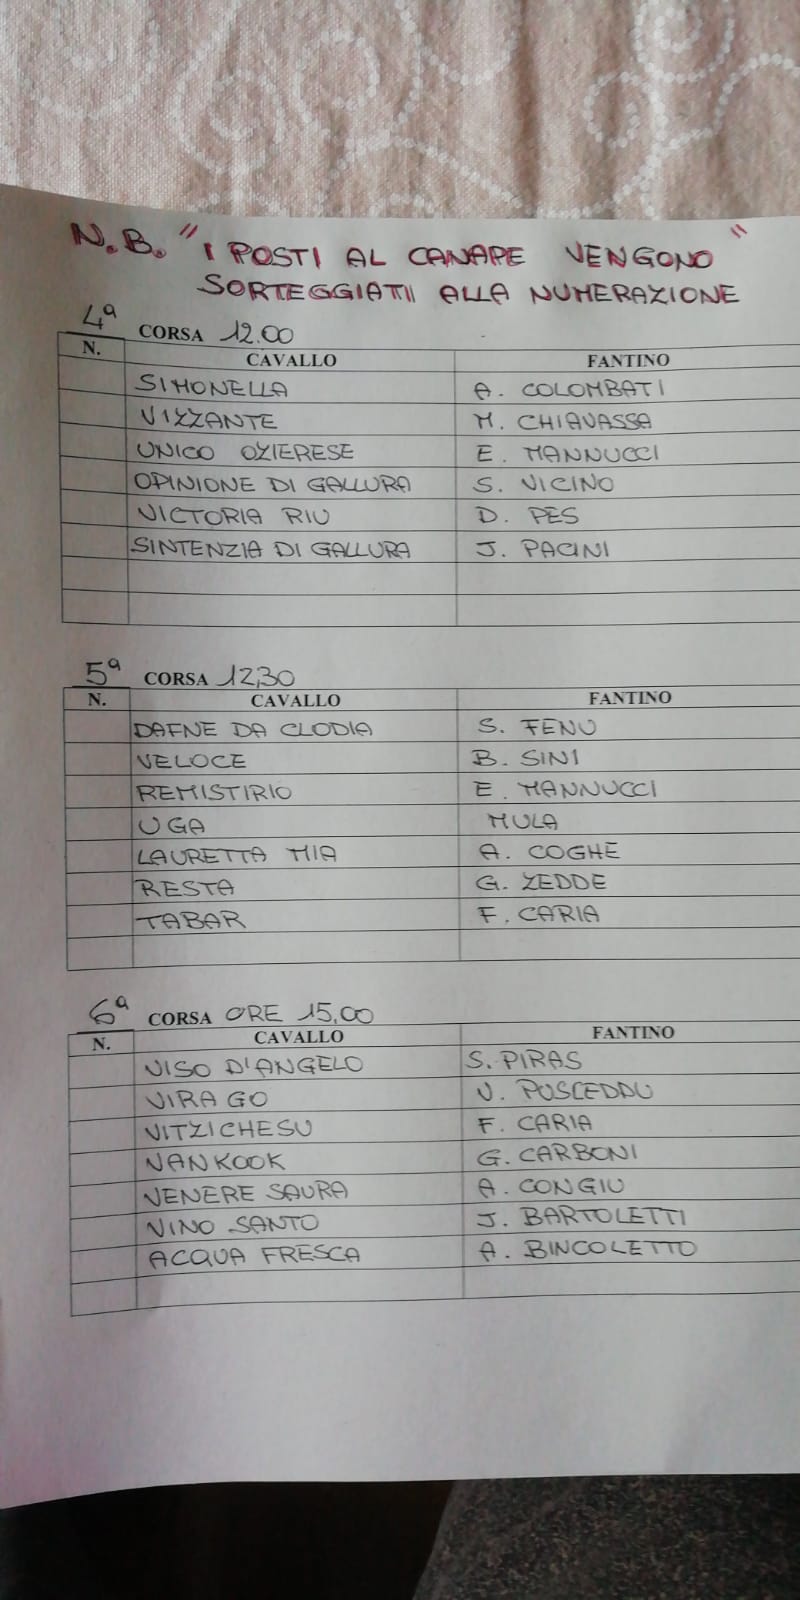 N.B. " I POSTI AL CANAPE VENGONO "
SORTEGGIATI ALLA NUMERAZIONE
4ª CORSA 12.00
N. CAVALLO FANTINO
SIMONELLA A. COLOMBATI
VIZZANTE M. CHIAVASSA
UNICO OZIERESE E. MANNUCCI
OPINIONE DI GALLURA S. VICINO
VICTORIA RIU D. PES
SINTENZIA DI GALLURA J. PACINI
5ª CORSA 12,30
N. CAVALLO FANTINO
DAFNE DA CLODIA S. FENU
VELOCE B. SINI
REMISTIRIO E. MANNUCCI
UGA MULA
LAURETTA MIA A. COGHE
RESTA G. ZEDDE
TABAR F. CARIA
6ª CORSA ORE 15,00
N. CAVALLO FANTINO
VISO D'ANGELO S. PIRAS
VIRAGO V. PUSCEDDU
VITZICHESU F. CARIA
NANKOOK G. CARBONI
VENERE SAURA A. CONGIU
VINO SANTO J. BARTOLETTI
ACQUA FRESCA A. BINCOLETTO